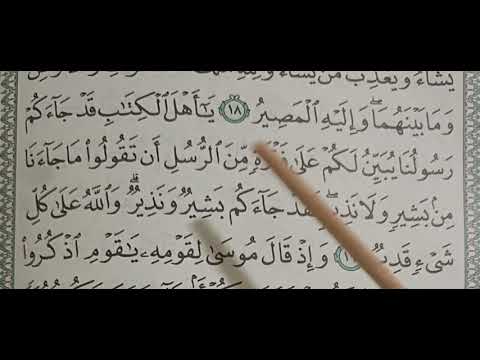 يَشَآءُ وَيُعَذِّبُ مَن يَشَآءُ وَلِلَّهِ
وَمَا بَيْنَهُمَا ۖ وَإِلَيْهِ ٱلْمَصِيرُ ۝١٨ يَـٰٓأَهْلَ ٱلْكِتَـٰبِ قَدْ جَآءَكُمْ
رَسُولُنَا يُبَيِّنُ لَكُمْ عَلَىٰ فَتْرَةٍ مِّنَ ٱلرُّسُلِ أَن تَقُولُوا۟ مَا جَآءَنَا
مِنۢ بَشِيرٍ وَلَا نَذِيرٍ ۖ فَقَدْ جَآءَكُم بَشِيرٌ وَنَذِيرٌ ۗ وَٱللَّهُ عَلَىٰ كُلِّ
شَىْءٍ قَدِيرٌ وَإِذْ قَالَ مُوسَىٰ لِقَوْمِهِۦ يَـٰقَوْمِ ٱذْكُرُوا۟